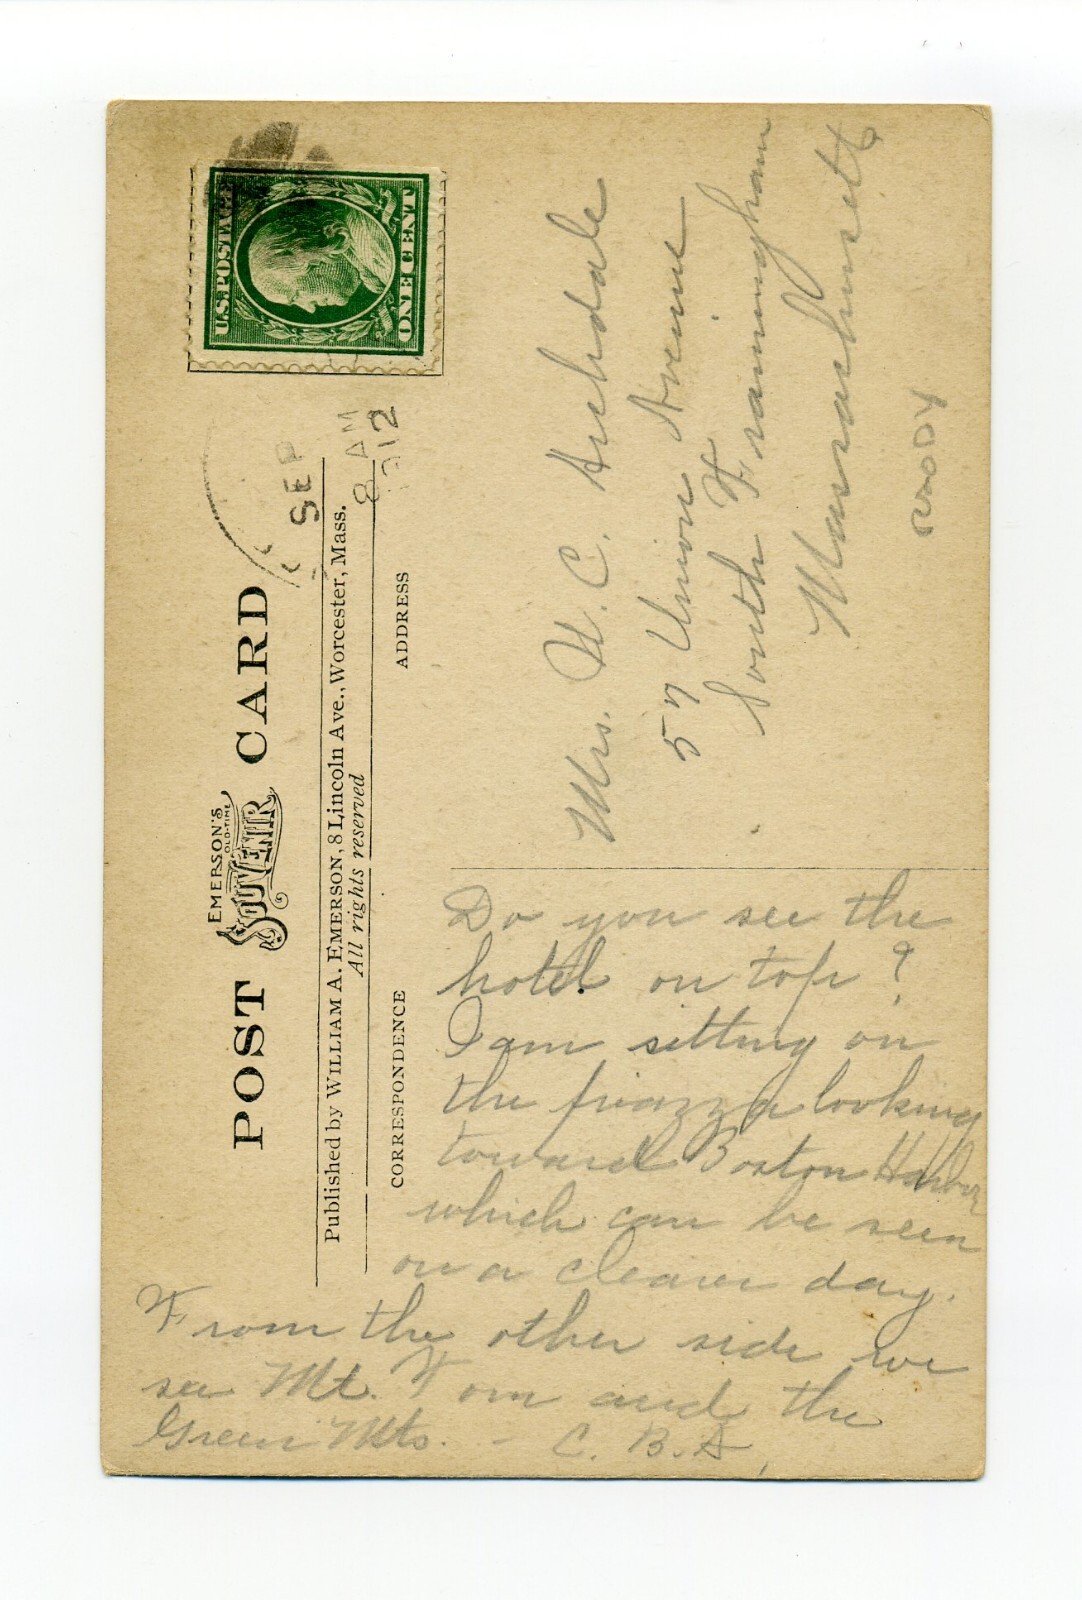 POST CARD
EMERSON'S
OLD-TIME
SOUVENIR
Published by WILLIAM A. EMERSON, 8 Lincoln Ave., Worcester, Mass.
All rights reserved
CORRESPONDENCE
ADDRESS
U.S. POSTAGE
ONE CENT
SEP
8 AM
1912
Mrs. H. C. Archdale
57 Union Avenue
South Framingham
Massachusetts
Do you see the
hotel on top?
I am sitting on
the piazza looking
toward Boston Harbor
which can be seen
on a clearer day.
From the other side we
see Mt. Tom and the
Green Mts. - C. B. A.